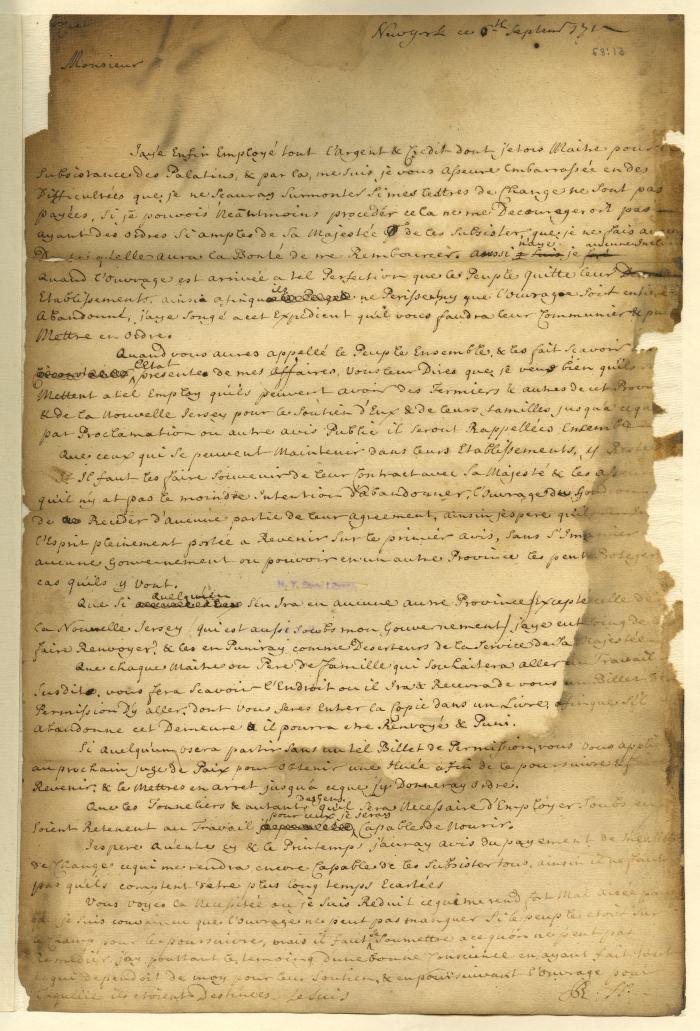 Newyork ce 6th Septembr 171
68:13
Monsieur
Jay'e Enfin Employé tout l'Argent & Credit dont je tois Maitre pour
Subsistance des Palatins, & par la, me suis, je vous Asseure Embarrassée en des
Difficultées que je ne Scauray Surmonter Si mes lettres de Change ne Sont pas
payées, Si je pouvois Neantmoins proceder cela ne me Decourageroit pas
ayant des ordres Si amples de Sa Majestée de les Subsister, que je ne Sais
qu'elle aura la Bonté de me Rembourcer. aussi n'aye je aucunement
Quand l'ouvrage est arrivée a tel Perfection que le Peuple quitte leurs
Etablissements, ainsi afinqu ils ne Perissent, ny que l'ouvrage Soit entie
Abandonné, j'aye Songé a cet Expedient qu'il vous faudra leur Communier &
Mettre en ordre.
Quand vous aures appellé le Peuple Ensemble, & les fait Scavoir
l'Etat presente de mes Affaires, Vous leur Dires que je veus bien qu'ils
Mettent a tel Employ qu'ils peuvent avoir des Fermiers & autres de cet Prov
& de la Nouvelle Jersey pour le Soutien d'Eux & de leurs familles jusqu'a ceque
par Proclamation ou autre avis Publie il seront Rappellées Ensemb
Que ceux qui Se peuvent Maintenir dans leurs Etablissements, y
Il faut les faire Souvenir de leur Contract avec Sa Majesté & les
qu'il ny at pas le moindre Intention d'abandonner, l'ouvrage du
de Receder d'Aucune partie de leur agreement, ainsin j'espere qu'il
l'Esprit pleinement portée a Revenir Sur le premier avis, Sans S'Im
aucune Gouvernement ou pouvoir en un autre Province les peut Proteger
cas qu'ils y Vont.
Que Si quelqu'un S'en Ira en aucune autre Province (Excepte celle de
la Nouvelle Jersey, qui est aussi Soubs mon Gouvernement) j'aye
faire Renvoyer, & les en Puniray comme Deserteurs de la Service de Sa Majestée
Que chaque Maitre ou Pere de Famille qui Souhaitera aller Travail
Susdit, vous fera Scavoir l'Endroit ou il Ira & Recevra de vous un Billet de
Permission d'y aller, dont vous Seres Entrer la Copie dans un Livre, afinque S'il
Abandonne cet Demeure il pourra etre Renvoyé & Puni.
Si Quelqu'un osera partir Sans un tel Billet de Permission, vous vous
au prochain juge de Paix pour obtenir une Huée afin de le poursuivre &
Revenir, & le Mettres en arret jusqu'a ceque j'y Donneray ordre.
Que les Tonneliers & autant des Gens qu'il Sera Necessaire d'Employer
Soient Retenent au Travail pour ceux je Seray Capable de Nourir.
J'espere qu'entre cy & le Printemps j'auray avis du payement de mes lettres
de Change cequi me rendra encore Capable de les Subsister tous, ainsin il ne faut
pas qu'ils comptent d'etre plus long temps Ecartées
Vous Voyes la Necessitée ou je Suis Reduit cequi me rend fort Mal aisée
je Suis convaincu que l'ouvrage ne peut pas manquer Si le peuple etoit Sur
le Champ pour le poursuivre, mais il faut Se Soumettre a ce qu'on ne peut pas
Remedier, j'ay pourtant le temoing d'une bonne Conscience en ayant fait tout
qui dependoit de moy pour leur Soutien, & en poursuivant l'ouvrage pour
laquelle ils etoient Destinées. Je Suis